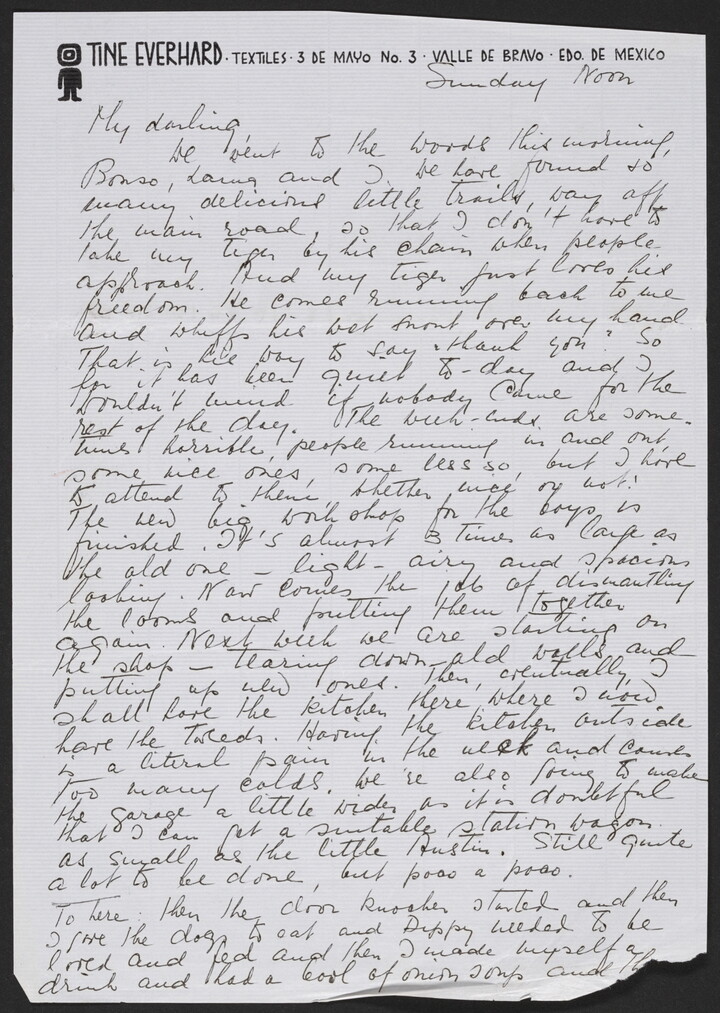 TINE EVERHARD · TEXTILES · 3 DE MAYO No. 3 · VALLE DE BRAVO · EDO. DE MEXICO
Sunday Noon
My darling,
We went to the woods this morning,
Bonso, and I. We have found so
many delicious little trails, way off
the main road, so that I don't have to
take my tiger by his chain when people
approach. And my tiger just loves his
freedom. He comes running back to me
and whiffs his wet snout over my hand
That is his way to say "thank you". So
far it has been quiet to-day and I
wouldn't mind if nobody came for the
rest of the day. The week-ends are some-
times horrible, people running in and out,
some nice ones, some less so, but I have
to attend to them, whether nice or not!
The new big workshop for the boys is
finished. It's almost 3 times as large as
the old one – light – airy and spacious
looking. Now comes the job of dismantling
the looms and putting them together
again. Next week we are starting on
the shop – tearing down old walls and
putting up new ones. Then, eventually, I
shall have the kitchen there, where I now
have the tweeds. Having the kitchen outside
is a literal pain in the neck and causes
too many colds. We're also going to make
the garage a little wider as it is doubtful
that I can get a suitable station wagon
as small as the little Austin. Still quite
a lot to be done, but poco a poco.
To here: then the door knocker started and then
I gave the dogs to eat and Dippy needed to be
loved and fed and then I made myself a
drink and had a bowl of onion soup and